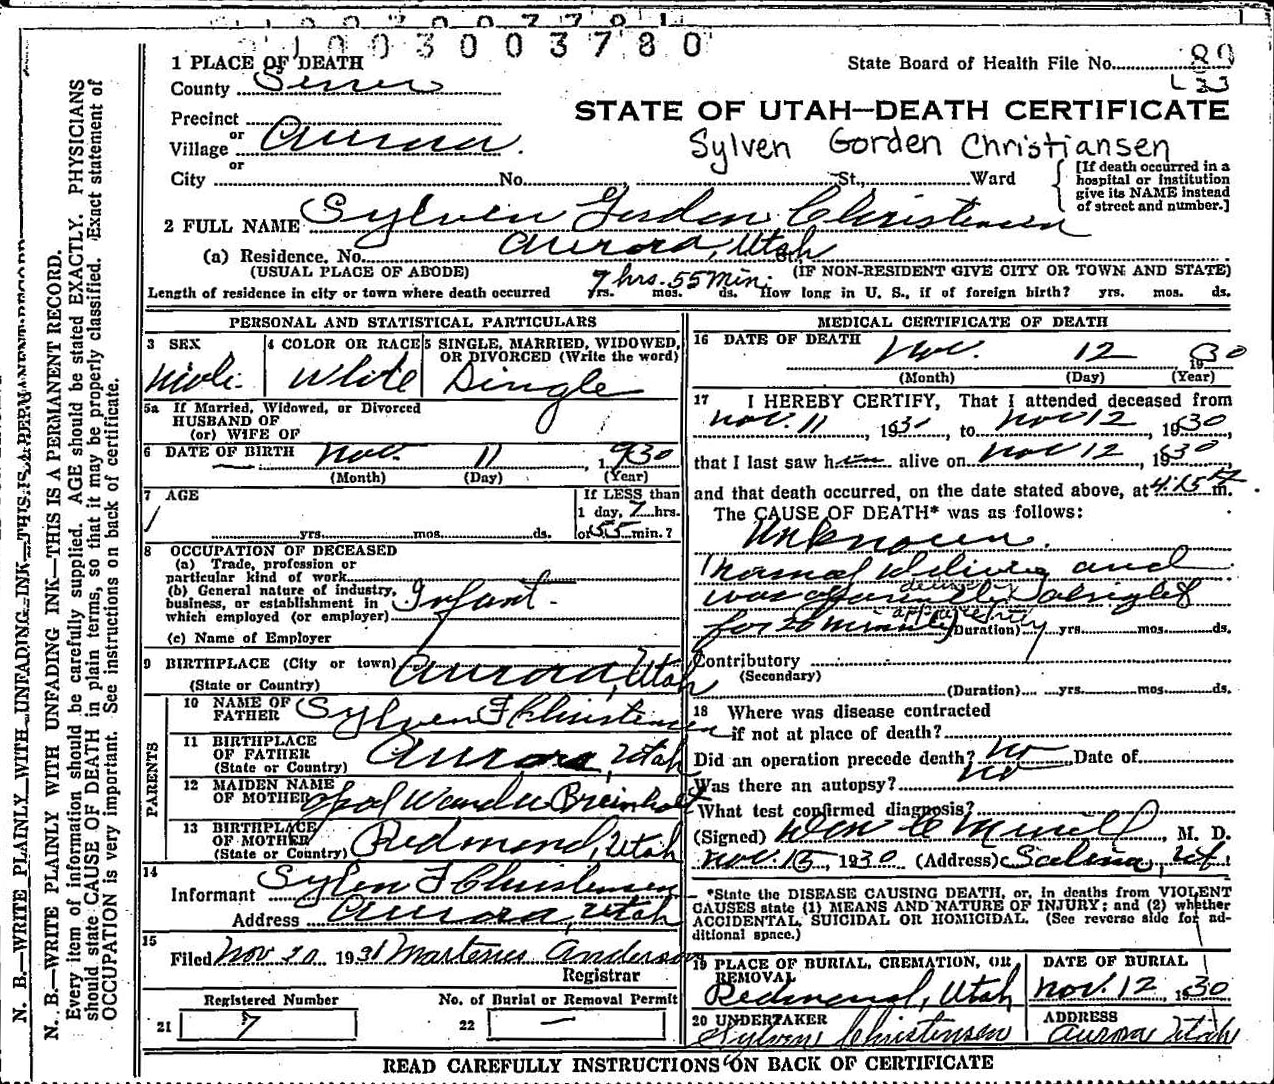 1003003780
1 PLACE OF DEATH
State Board of Health File No. 80
County Sevier
STATE OF UTAH—DEATH CERTIFICATE
Precinct
or
Village Aurora.
Sylven Gorden Christiansen
or
City No. St., Ward
[If death occurred in a hospital or institution give its NAME instead of street and number.]
2 FULL NAME Sylven Gorden Christensen
(a) Residence. No. Aurora, Utah
(USUAL PLACE OF ABODE) (IF NON-RESIDENT GIVE CITY OR TOWN AND STATE)
7 hrs. 55 min.
Length of residence in city or town where death occurred yrs. mos. ds. How long in U. S., if of foreign birth? yrs. mos. ds.
PERSONAL AND STATISTICAL PARTICULARS
3 SEX 4 COLOR OR RACE 5 SINGLE, MARRIED, WIDOWED, OR DIVORCED (Write the word)
Male White Single
5a If Married, Widowed, or Divorced
HUSBAND OF
(or) WIFE OF
6 DATE OF BIRTH Nov. 11, 1930
(Month) (Day) (Year)
7 AGE
If LESS than
1 day, 7 hrs.
yrs. mos. ds. or 55 min.?
8 OCCUPATION OF DECEASED
(a) Trade, profession or
particular kind of work
(b) General nature of industry,
business, or establishment in
which employed (or employer) Infant.
(c) Name of Employer
9 BIRTHPLACE (City or town) Aurora, Utah
(State or Country)
PARENTS
10 NAME OF FATHER Sylven F Christensen
11 BIRTHPLACE OF FATHER Aurora, Utah
(State or Country)
12 MAIDEN NAME OF MOTHER Opal Wanda Breinholt
13 BIRTHPLACE OF MOTHER Redmond, Utah
(State or Country)
14
Informant Sylven F Christensen
Address Aurora, Utah
15
Filed Nov 20 1931 Martenus Anderson
Registrar
Registered Number No. of Burial or Removal Permit
21 7 22 —
MEDICAL CERTIFICATE OF DEATH
16 DATE OF DEATH Nov. 12 1930
(Month) (Day) (Year)
17 I HEREBY CERTIFY, That I attended deceased from
Nov. 11, 1930, to Nov 12, 1930,
that I last saw him alive on Nov 12, 1930
and that death occurred, on the date stated above, at 4:15 m.
The CAUSE OF DEATH* was as follows:
Unknown.
Normal delivery and
was apparently alright
for 20 minutes
(Duration) yrs. mos. ds.
Contributory
(Secondary)
(Duration) yrs. mos. ds.
18 Where was disease contracted
if not at place of death?
Did an operation precede death? no Date of
Was there an autopsy? no
What test confirmed diagnosis?
(Signed) Wm C Merrell, M. D.
Nov. 15, 1930 (Address) Salina, Ut.
*State the DISEASE CAUSING DEATH, or, in deaths from VIOLENT
CAUSES state (1) MEANS AND NATURE OF INJURY; and (2) whether
ACCIDENTAL, SUICIDAL OR HOMICIDAL. (See reverse side for ad-
ditional space.)
19 PLACE OF BURIAL, CREMATION, OR REMOVAL DATE OF BURIAL
Redmond, Utah Nov. 12, 1930
20 UNDERTAKER ADDRESS
Sylven Christensen Aurora Utah
READ CAREFULLY INSTRUCTIONS ON BACK OF CERTIFICATE
N. B.—WRITE PLAINLY WITH UNFADING INK—THIS IS A PERMANENT RECORD.
N. B.—WRITE PLAINLY WITH UNFADING INK—THIS IS A PERMANENT RECORD.
Every item of information should be carefully supplied. AGE should be stated EXACTLY. PHYSICIANS
should state CAUSE OF DEATH in plain terms, so that it may be properly classified. Exact statement of
OCCUPATION is very important. See instructions on back of certificate.